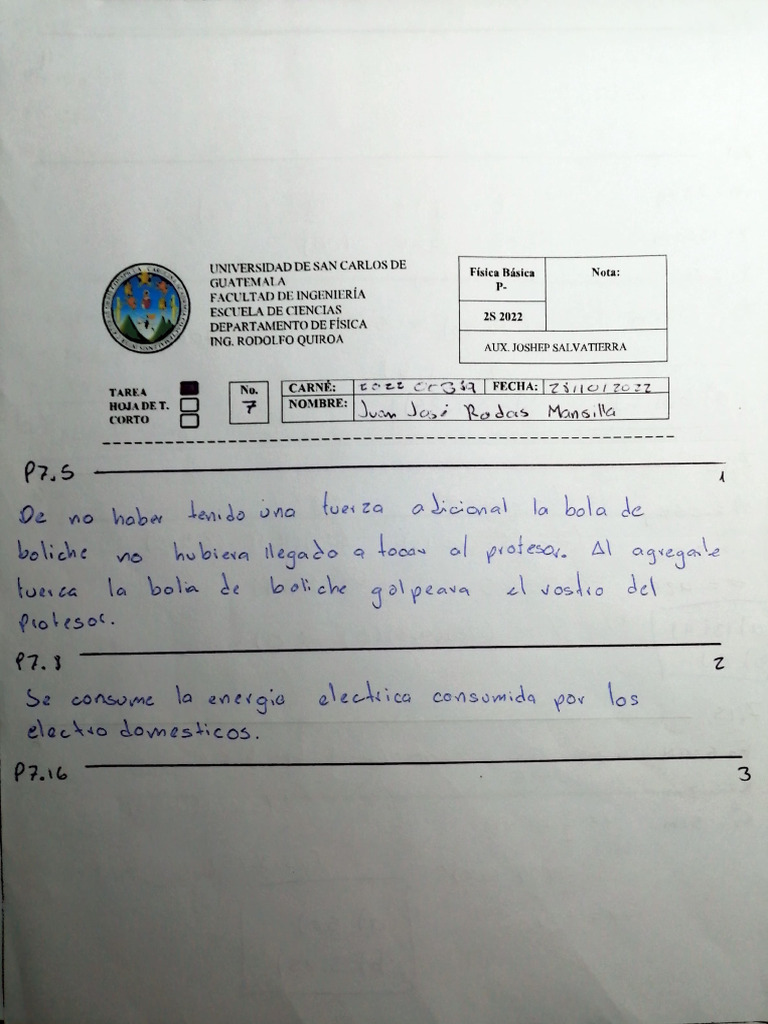 UNIVERSIDAD DE SAN CARLOS DE
GUATEMALA
FACULTAD DE INGENIERÍA
ESCUELA DE CIENCIAS
DEPARTAMENTO DE FÍSICA
ING. RODOLFO QUIROA
Física Básica
P-
Nota:
2S 2022
AUX. JOSHEP SALVATIERRA
TAREA
HOJA DE T.
CORTO
No.
7
CARNÉ:
FECHA: 28/10/2022
NOMBRE: Juan José Rodas Mansilla
P7.5 1
De no haber tenido una fuerza adicional la bola de
boliche no hubiera llegado a tocar al profesor. Al agregarle
fuerza la bola de boliche golpeara el rostro del
profesor.
P7.8 2
Se consume la energia electrica consumida por los
electro domesticos.
P7.16 3